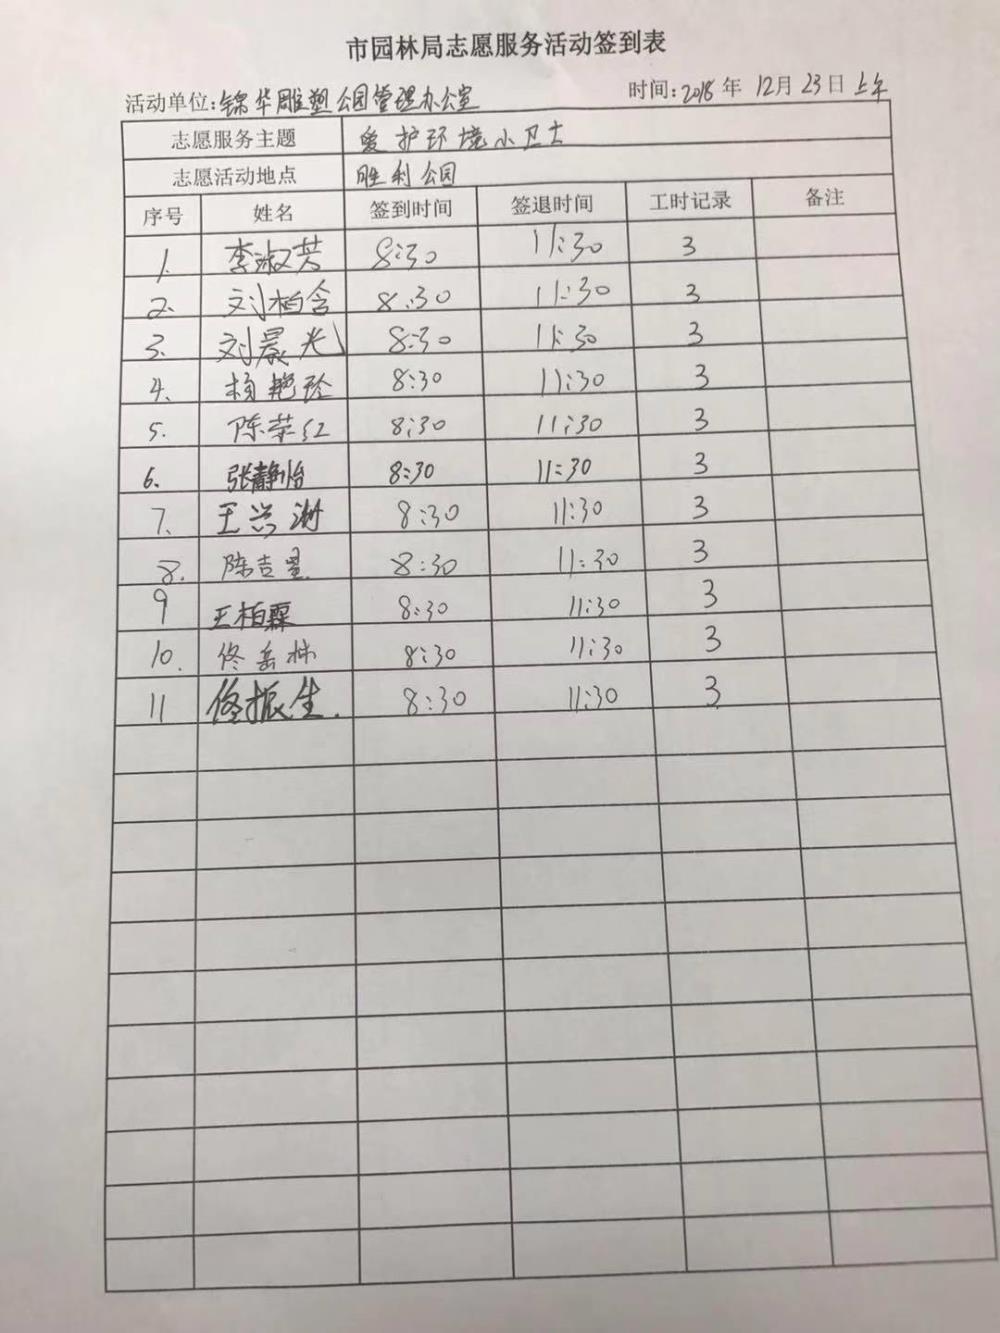 市园林局志愿服务活动签到表
活动单位:锦华雕塑公园管理办公室 时间:2018年 12月 23日 上午
志愿服务主题 爱护环境小卫士
志愿活动地点 胜利公园
序号 姓名 签到时间 签退时间 工时记录 备注
1. 李淑芳 8:30 11:30 3
2. 刘柏含 8:30 11:30 3
3. 刘晨光 8:30 11:30 3
4. 杨艳玲 8:30 11:30 3
5. 陈荣红 8:30 11:30 3
6. 张静怡 8:30 11:30 3
7. 王 8:30 11:30 3
8. 陈吉星 8:30 11:30 3
9 王柏霖 8:30 11:30 3
10. 佟岳林 8:30 11:30 3
11 佟振生. 8:30 11:30 3